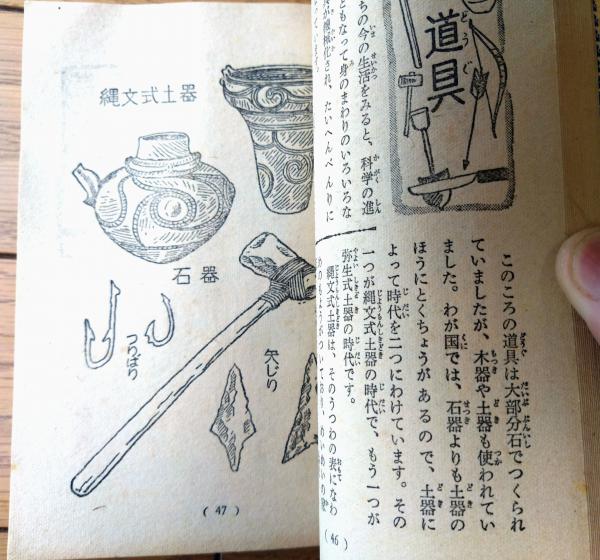 道具
どうぐ
ちの今の生活をみると、科学の進
ともなって身のまわりのいろいろな
化され、たいへんべんりに
ています。
このころの道具は大部分石でつくられ
ていましたが、木器や土器も使われてい
ました。わが国では、石器よりも土器の
ほうにとくちょうがあるので、土器に
よって時代を二つにわけています。その
一つが縄文式土器の時代で、もう一つが
弥生式土器の時代です。
縄文式土器は、そのうつわの表になわ
(46)
縄文式土器
石器
つりばり
矢じり
(47)